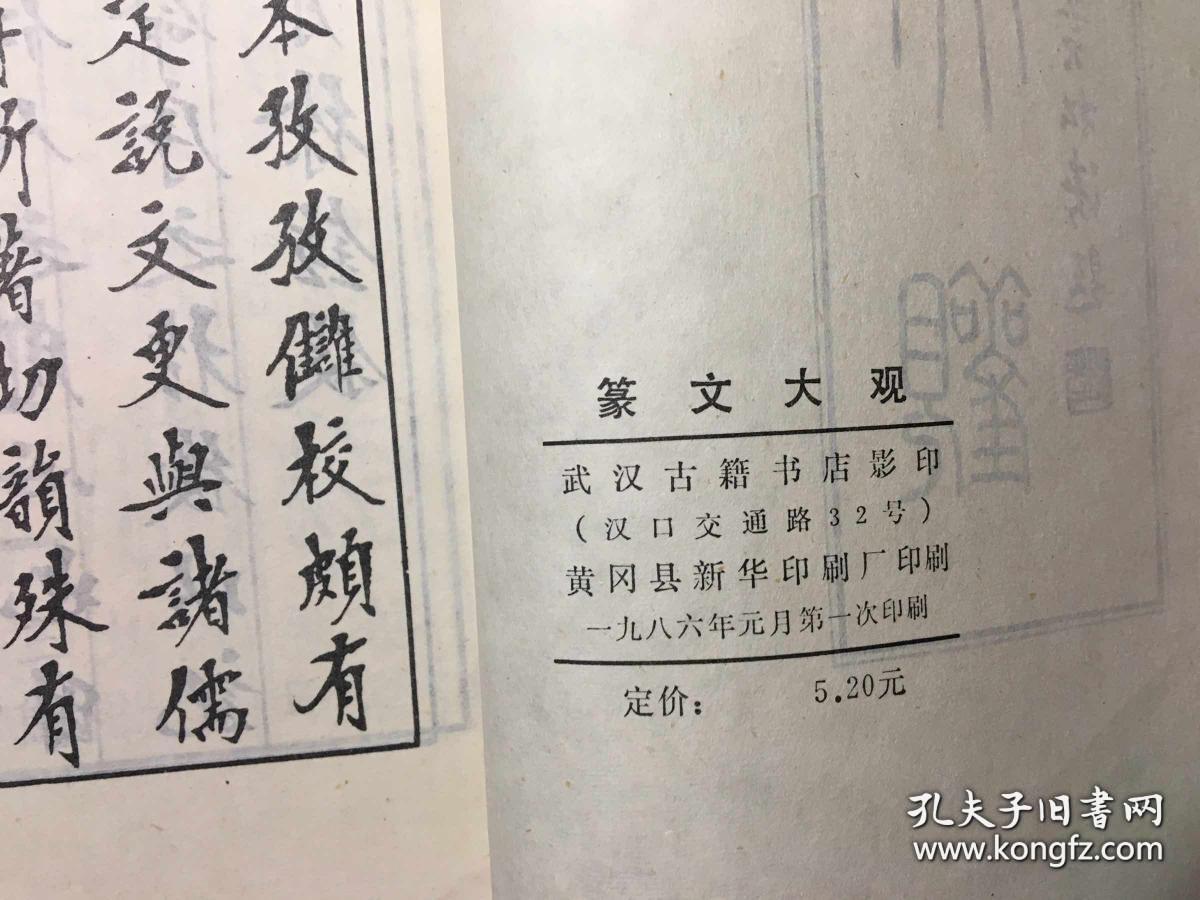 本孜孜讎校頗有
疋説文更與諸儒
所著切韻殊有
篆文大观
武汉古籍书店影印
(汉口交通路32号)
黄冈县新华印刷厂印刷
一九八六年元月第一次印刷
定价: 5.20元
孔夫子旧书网
www.kongfz.com